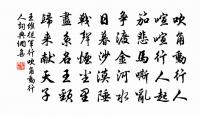 吹角動行人
喧喧行人起
笳悲馬嘶亂
爭渡金河水
日暮沙漠陲
戰聲煙塵裏
盡系名王頸
歸來獻天子
王維從軍行吹角動行
人詞典網書